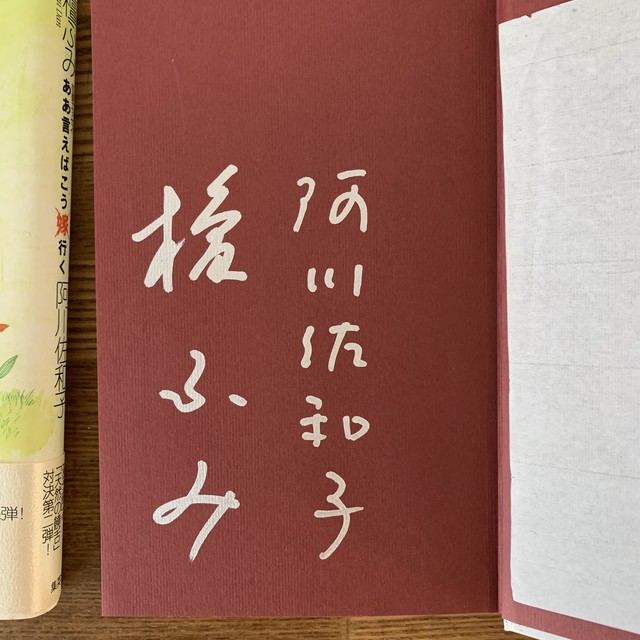 阿川佐和子
檀ふみ
檀ふみ
ああ言えばこう嫁行く
阿川佐和子
対決第二弾!
弾!